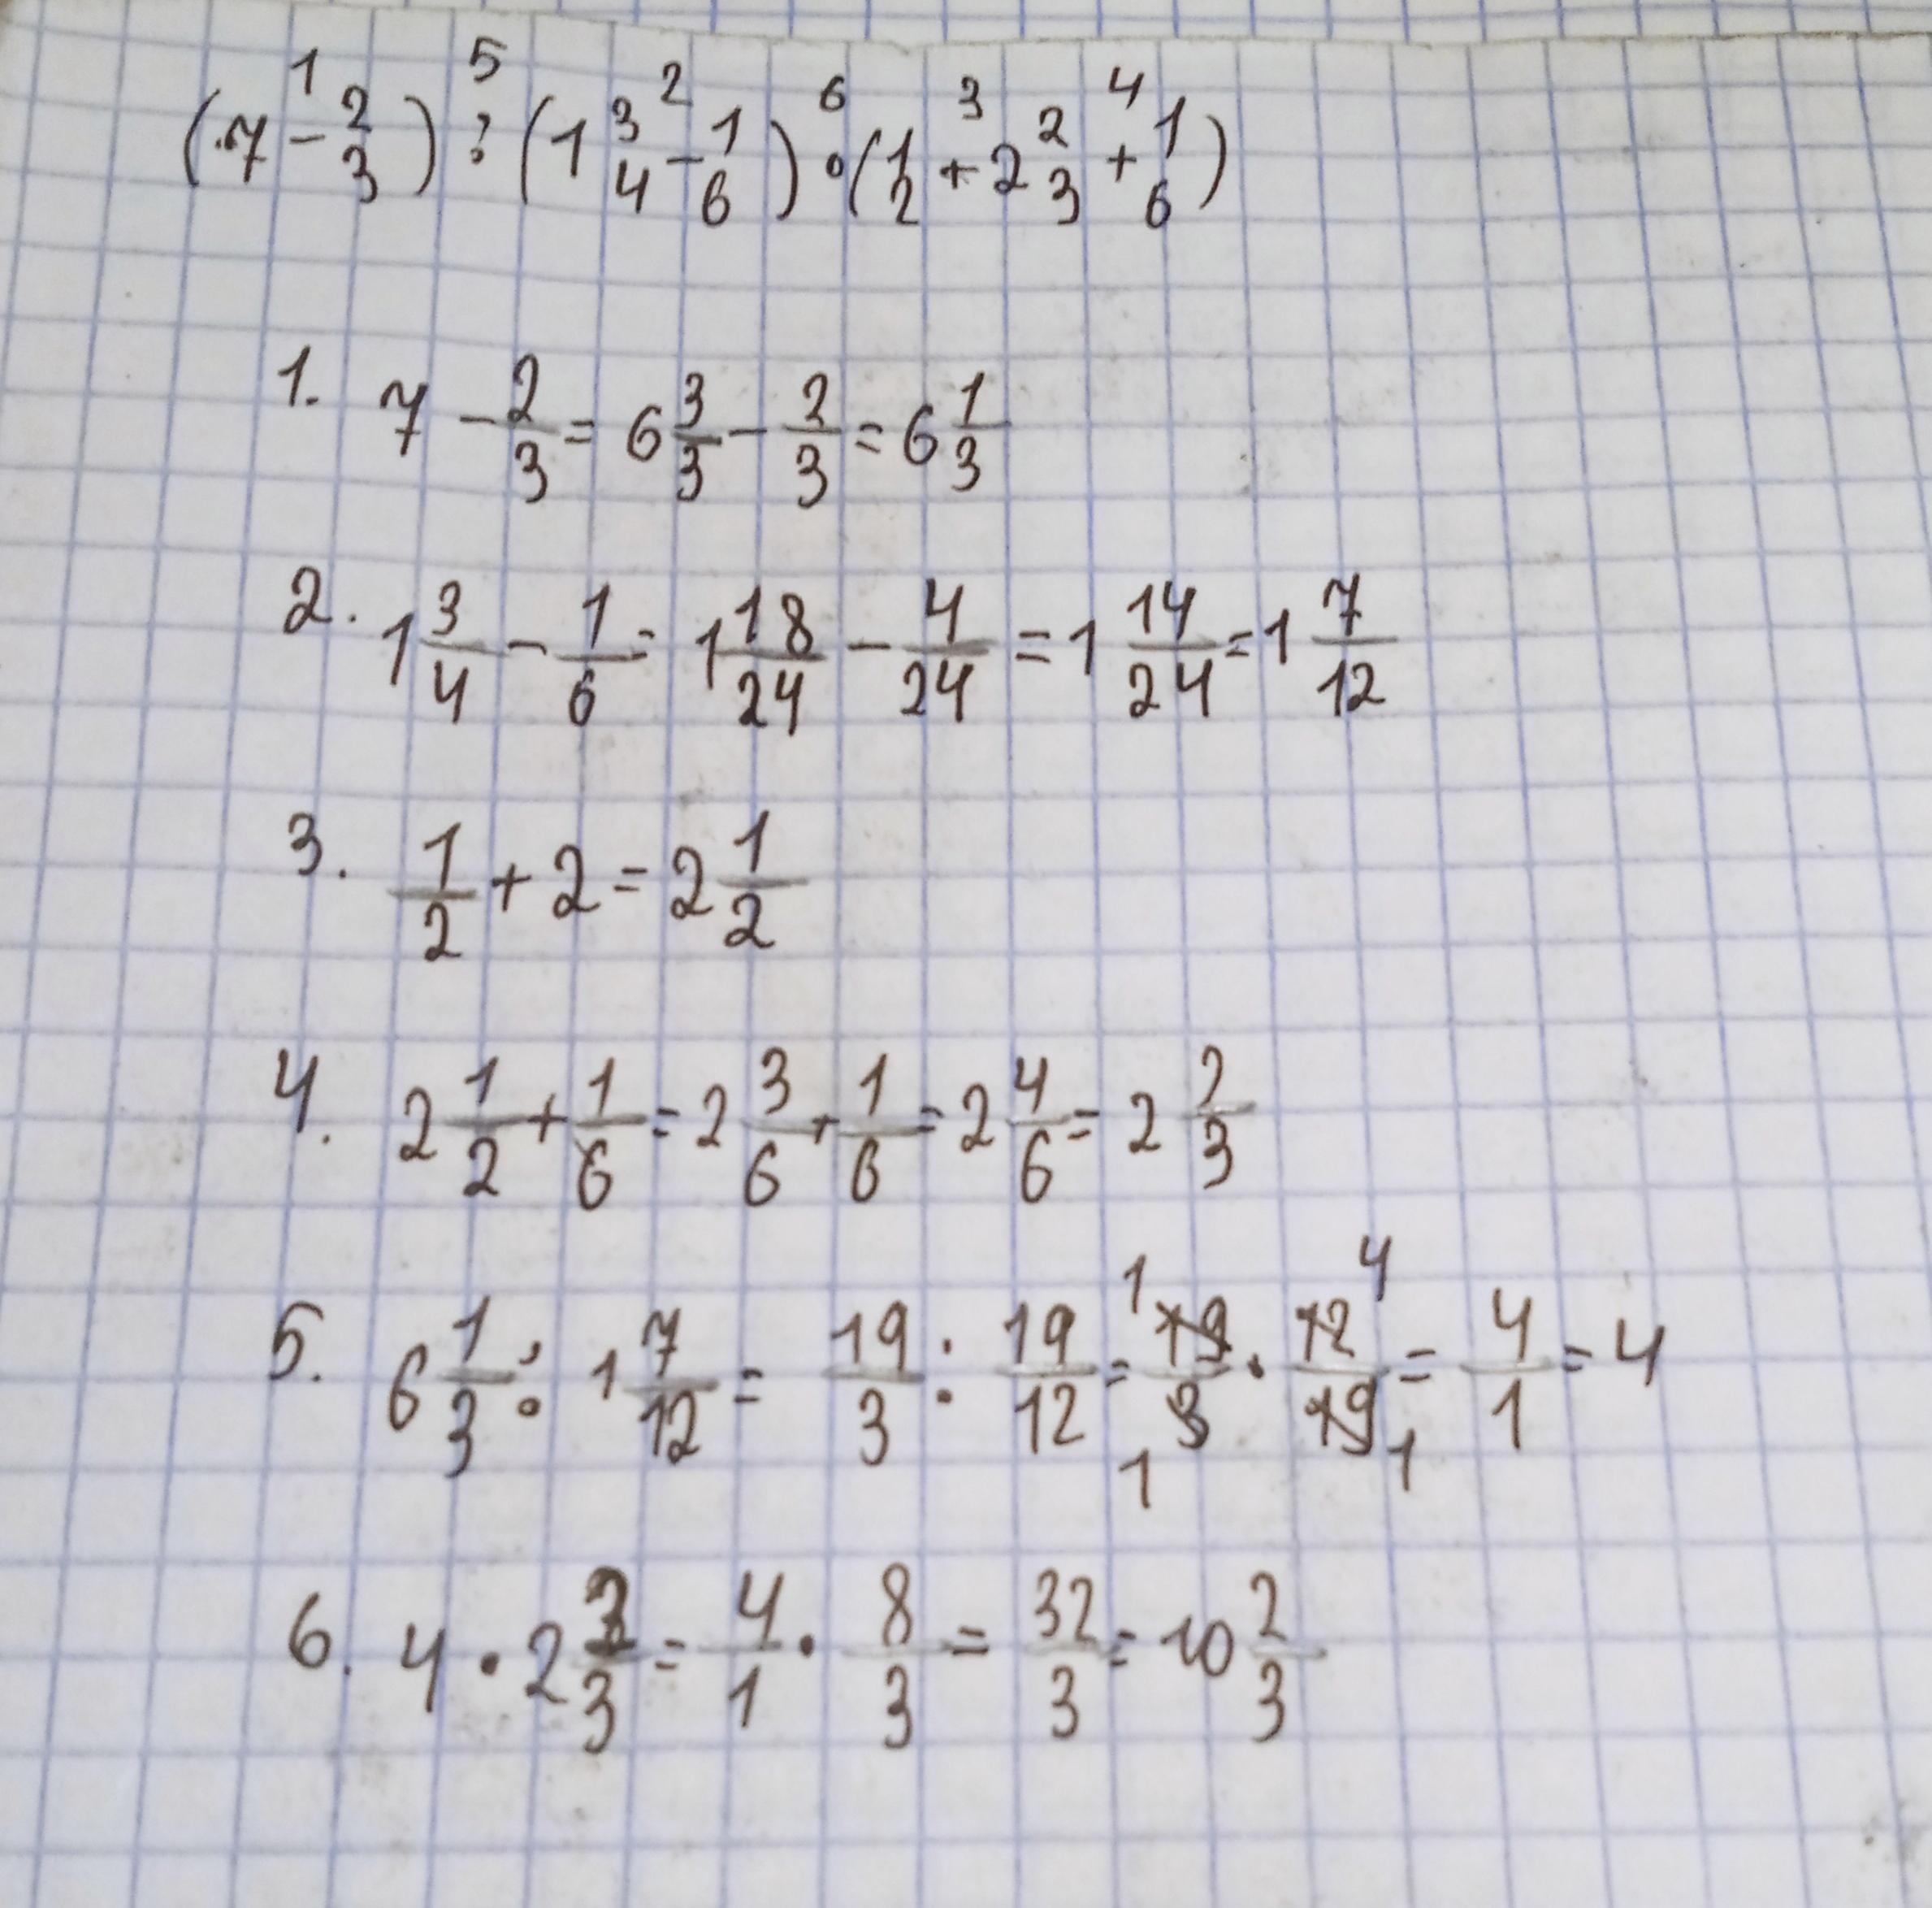 (7 - 2/3) : (1 3/4 - 1/6) · (1/2 + 2 2/3 + 1/6)
1. 7 - 2/3 = 6 3/3 - 2/3 = 6 1/3
2. 1 3/4 - 1/6 = 1 18/24 - 4/24 = 1 14/24 = 1 7/12
3. 1/2 + 2 = 2 1/2
4. 2 1/2 + 1/6 = 2 3/6 + 1/6 = 2 4/6 = 2 2/3
5. 6 1/3 : 1 7/12 = 19/3 : 19/12 = 19/3 · 12/19 = 4/1 = 4
6. 4 · 2 2/3 = 4/1 · 8/3 = 32/3 = 10 2/3